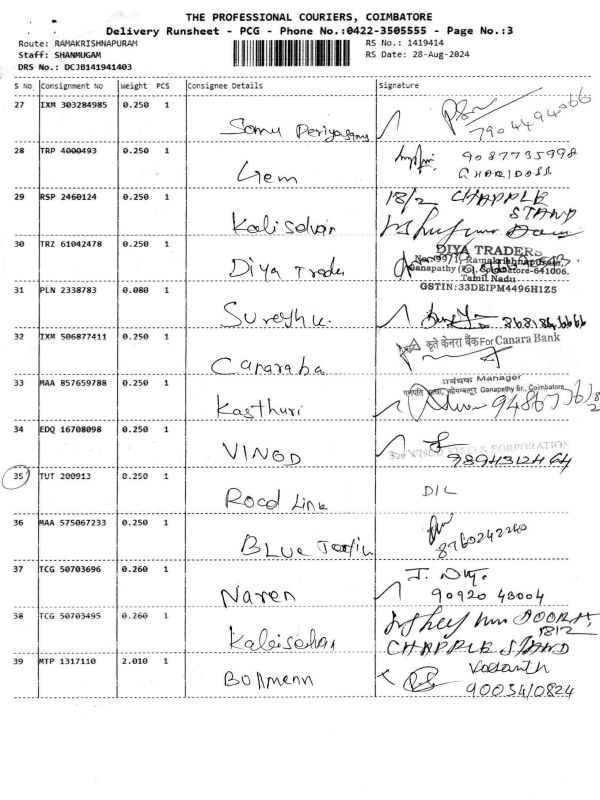 THE PROFESSIONAL COURIERS, COIMBATORE
Delivery Runsheet - PCG - Phone No.:0422-3505555 - Page No.:3
Route: RAMAKRISHNAPURAM
RS No.: 1419414
Staff: SHANMUGAM
RS Date: 28-Aug-2024
DRS No.: DCJB141941403
S No Consignment No Weight PCS Consignee Details Signature
27 IXM 303284985 0.250 1
7904494066
28 TRP 4000493 0.250 1 Gem
9087735998
29 RSP 2460124 0.250 1 Kaliselvan
18/2 CHAPPLE
STAND
30 TRZ 61042478 0.250 1 Diya Trades
DIYA TRADERS
Ramakrishnapuram,
Ganapathy (Po), Coimbatore-641006.
Tamil Nadu
GSTIN:33DEIPM4496H1Z5
31 PLN 2338783 0.080 1 Suresh k.
32 IXM 506877411 0.250 1 Canaraba
कृते केनरा बैंक For Canara Bank
33 MAA 857659788 0.250 1 Kasthuri
प्रबंधक Manager
Ganapathy Br., Coimbatore
34 EDQ 16708098 0.250 1 VINOD
STEELS CORPORATION
9894312464
35 TUT 200913 0.250 1 Road Link
D/L
36 MAA 575067233 0.250 1 BLUE
8760242260
37 TCG 50703696 0.260 1 Naren
90920 48004
38 TCG 50703495 0.260 1 Kaleiselvan
DOOR
18/2
CHAPPLE STAND
39 MTP 1317110 2.010 1 Bollmenn
Vasanth
9003410824